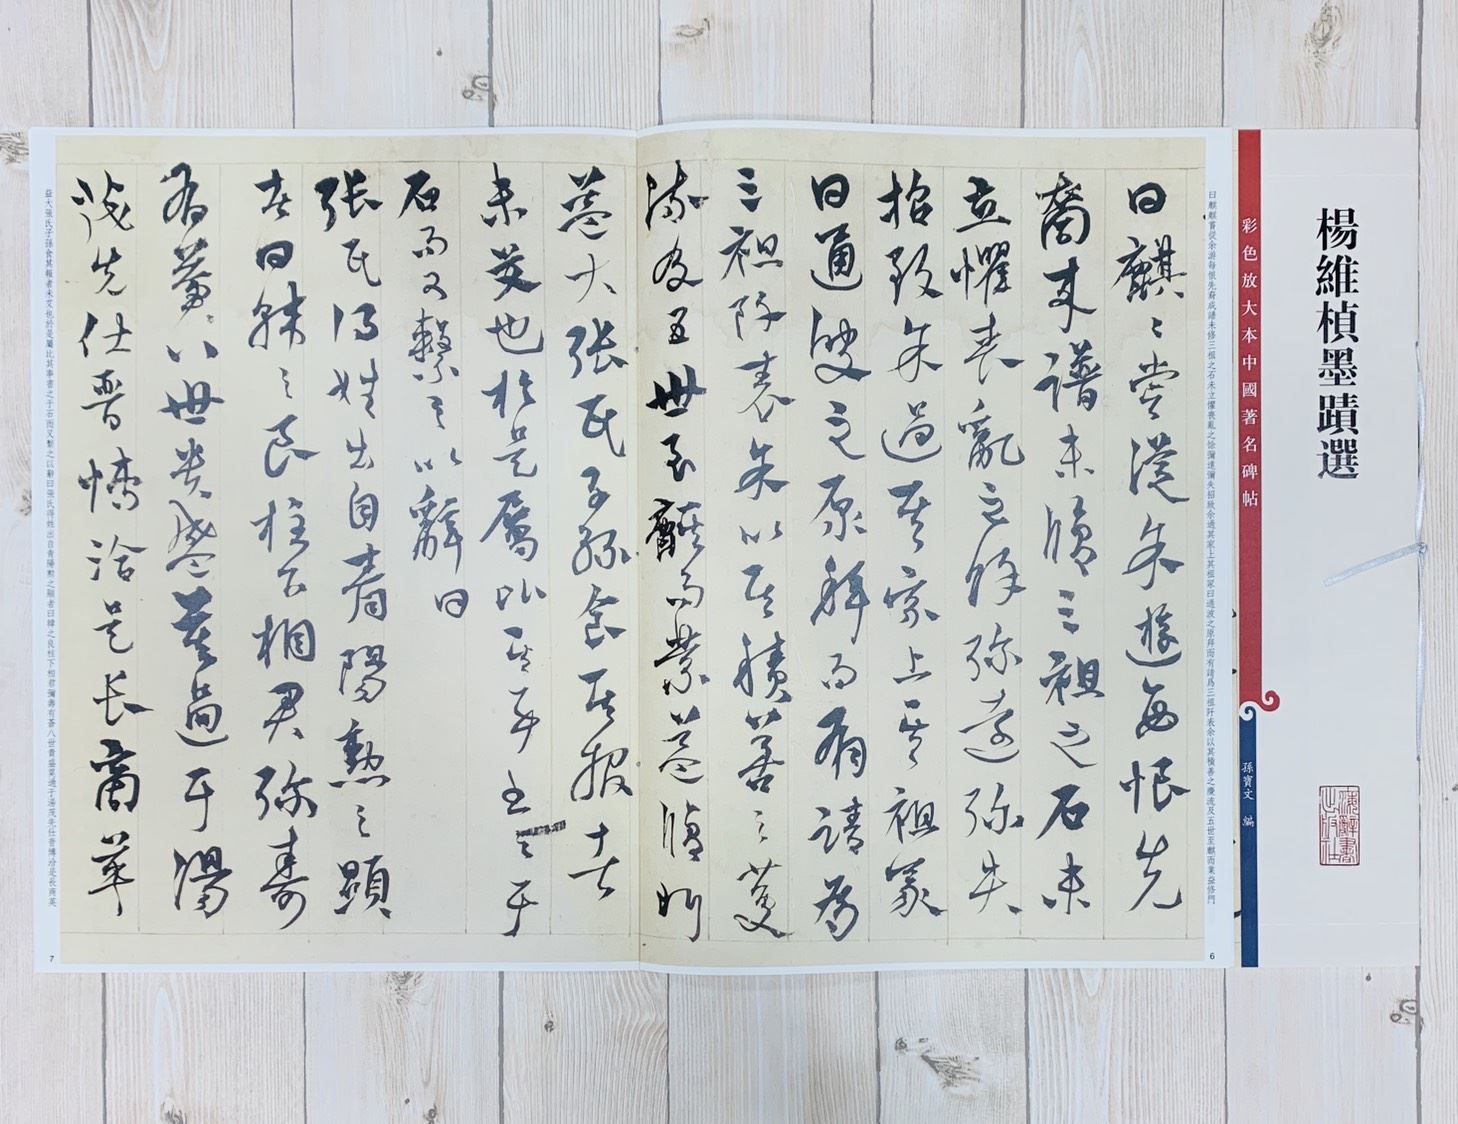 楊維楨墨蹟選
彩色放大本中國著名碑帖
孫寶文 編
上海辭書出版社
曰麒麒嘗從余游每恨先裔成譜未修三祖之石未立懼喪亂之餘彌遠彌失招致余過其家上其祖冢曰通波之原拜而有請為三祖阡表余以其積善之慶流及五世至麒而業益修門
6
曰麒麒嘗從余遊每恨先
裔成譜未脩三祖之石未
立懼喪亂之餘弥遠弥失
招致余過其家上其祖冢
曰通波之原拜而有請為
三祖阡表余以其積善之慶
流及五世至麒而業益脩門
益大張氏子孫食其報者
未艾也於是屬比其事書之于
石而又繫之以辭曰
張氏得姓出自青陽勲之顯
者曰韓之良柱下相君弥壽
有蒼八世贵盛莫過于湯
茂先仕晉博洽是長商英
益大張氏子孫食其報者未艾也於是屬比其事書之于石而又繫之以辭曰張氏得姓出自青陽勲之顯者曰韓之良柱下相君彌壽有蒼八世貴盛莫過于湯茂先仕晉博洽是長商英
7